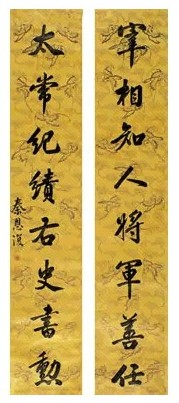 宰相知人將軍善任
太常紀績右史書勳
秦恩復